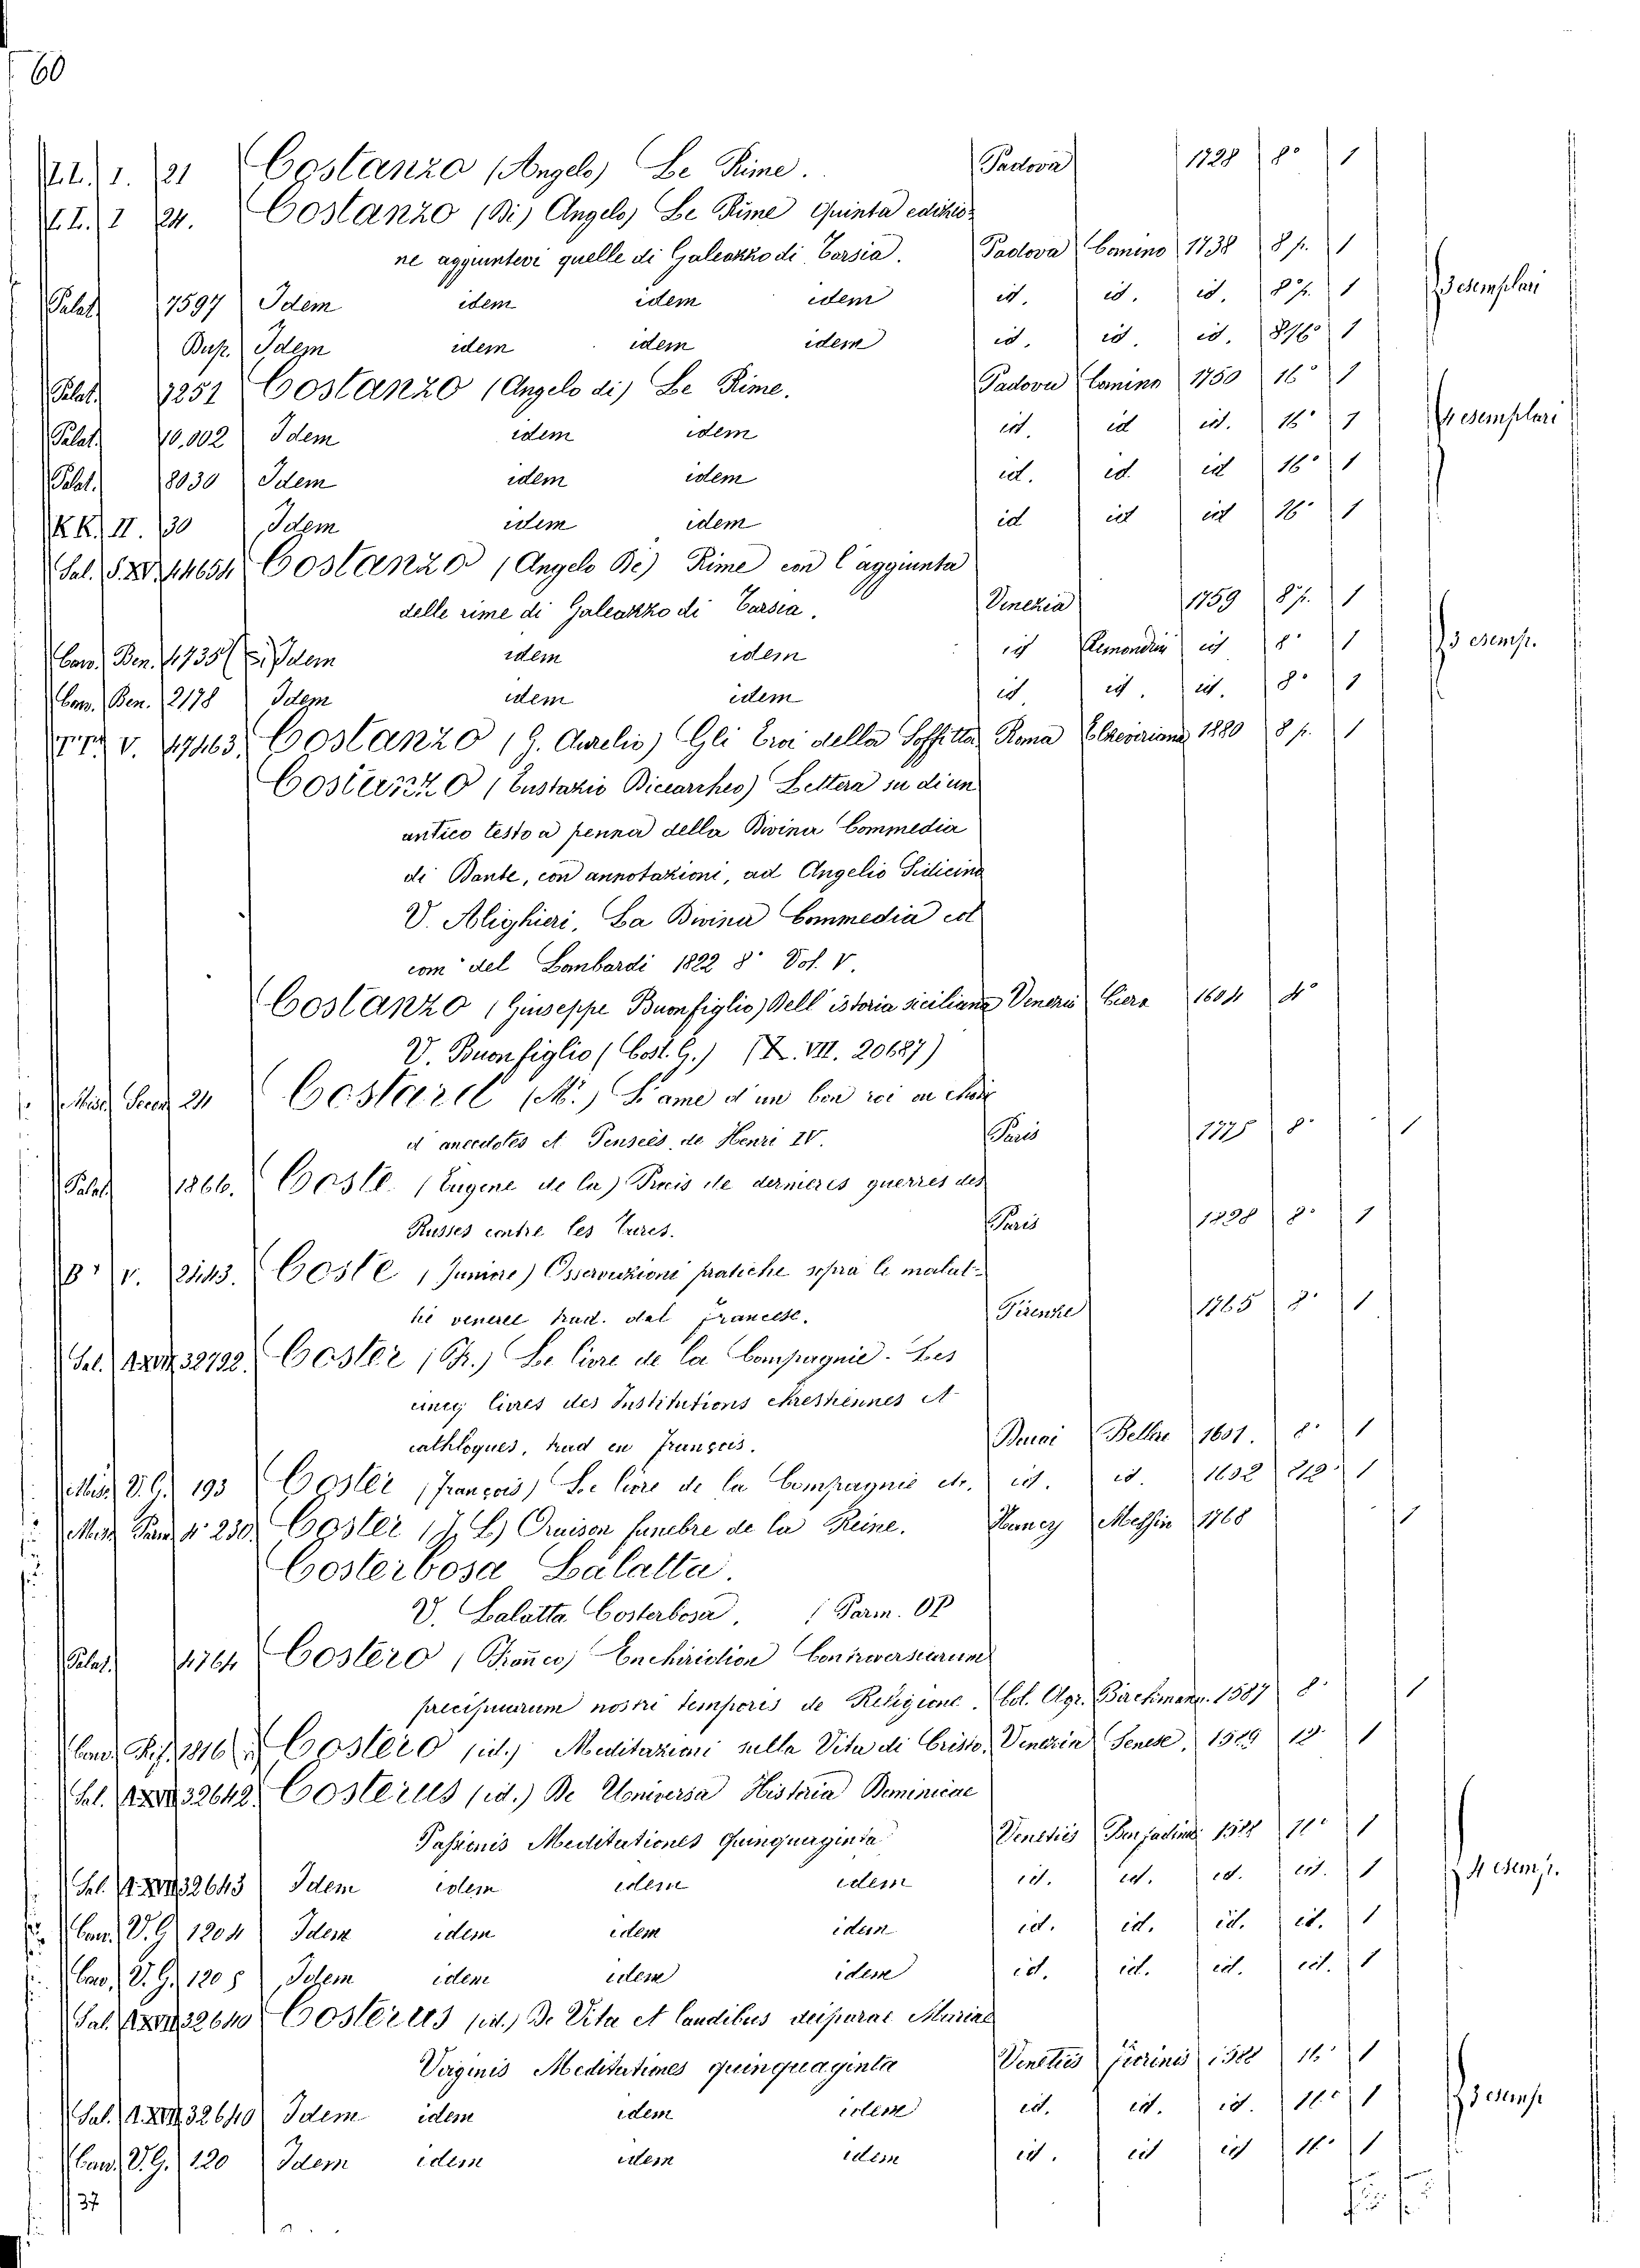 60
I. 21 Costanzo (Angelo) Le Rime. Padova 1728 8° 1
I 24. Costanzo (Di) Angelo) Le Rime Quinta edizio-
ne aggiuntevi quelle di Galeazzo di Tarsia. Padova Comino 1738 8 p. 1
Palat. 7597 Idem idem idem idem id. id. id. 8 p. 1 3 esemplari
Bup. Idem idem idem idem id. id. id. 1
Palat. 1251 Costanzo (Angelo di) Le Rime. Padova Comino 1750 16° 1
Palat. 10.002 Idem idem idem id. id id. 16° 1 4 esemplari
Palat. 8030 Idem idem idem id. id. id 16° 1
KK. II. 30 Idem idem idem id id id 16° 1
Sal. S. XV. 14654 Costanzo (Angelo Di) Rime con l'aggiunta
delle rime di Galeazzo di Tarsia. Venezia 1759 8 p. 1
Cam. Ben. 1735 Idem idem idem id Remondini id 8° 1 3 esemp.
Cam. Ben. 2178 Idem idem idem id. id. id. 8° 1
V. 17463. Costanzo (G. Aurelio) Gli Eroi della Soffitta Roma Elzeviriana 1880 8 p. 1
Costanzo (Eustazio Dicearcheo) Lettera su di un
antico testo a penna della Divina Commedia
di Dante, con annotazioni, ad Angelio Sidicino
V. Alighieri, La Divina Commedia col
com° del Lombardi 1822 8° Vol. V.
Costanzo (Giuseppe Buonfiglio) Dell' istoria siciliana Venezia Ciera 1604 4°
V. Buonfiglio (Cost. G.) (Z. VII. 20687)
Misc. 24 Costard (M.) L'ame d'un bon roi ou choix
d'anecdotes et Pensées de Henri IV. Paris 1775 8° 1
Palat. 1866. Coste (Eugene de la) Precis de dernieres guerres des
Russes contre les Turcs. Paris 1828 8° 1
V. 2443. Coste (Juniore) Osservazioni pratiche sopra le malat-
tie veneree trad. dal francese. Firenze 1765 8° 1
Sal. 32792. Coster (Fr.) Le livre de la Compagnie. Les
cinq livres des Institutions chrestiennes et
catholoques, trad en françois. Douai Bellere 1601. 8° 1
Misc. V.G. 193 Coster (François) Le livre de la Compagnie etc. id. id. 1602 1
Misc. 4° 230. Coster (J. L.) Oraison funebre de la Reine. Nancy Messin 1768 1
Costerbosa Lalatta.
V. Lalatta Costerbosa. (Parm. OP
Palat. 4764 Costero (Franco) Enchiridion Controversiarum
precipuarum nostri temporis de Religione. Col. Agr. Birckmann. 1587 8° 1
Cam. Rif. 1816 Costero (id.) Meditazioni sulla Vita di Cristo. Venezia Senese, 1589 12° 1
Sal. 32642. Costerus (id.) De Universa Historia Dominicae
Passionis Meditationes Quinquaginta Venetiis 1
Sal. 32643 Idem idem idem idem id. id. id. id. 1 4 esemp.
Cam. V.G. 1204 Idem idem idem idem id. id. id. id. 1
Cam. V.G. 1205 Idem idem idem idem id. id. id. id. 1
Sal. 32640 Costerus (id.) De Vita et Laudibus deiparae Mariae
Virginis Meditationes quinquaginta Venetiis 1588 1
Sal. 32640 Idem idem idem idem id. id. id. 1 3 esemp
Cam. V.G. 120 Idem idem idem idem id. id id 1
37